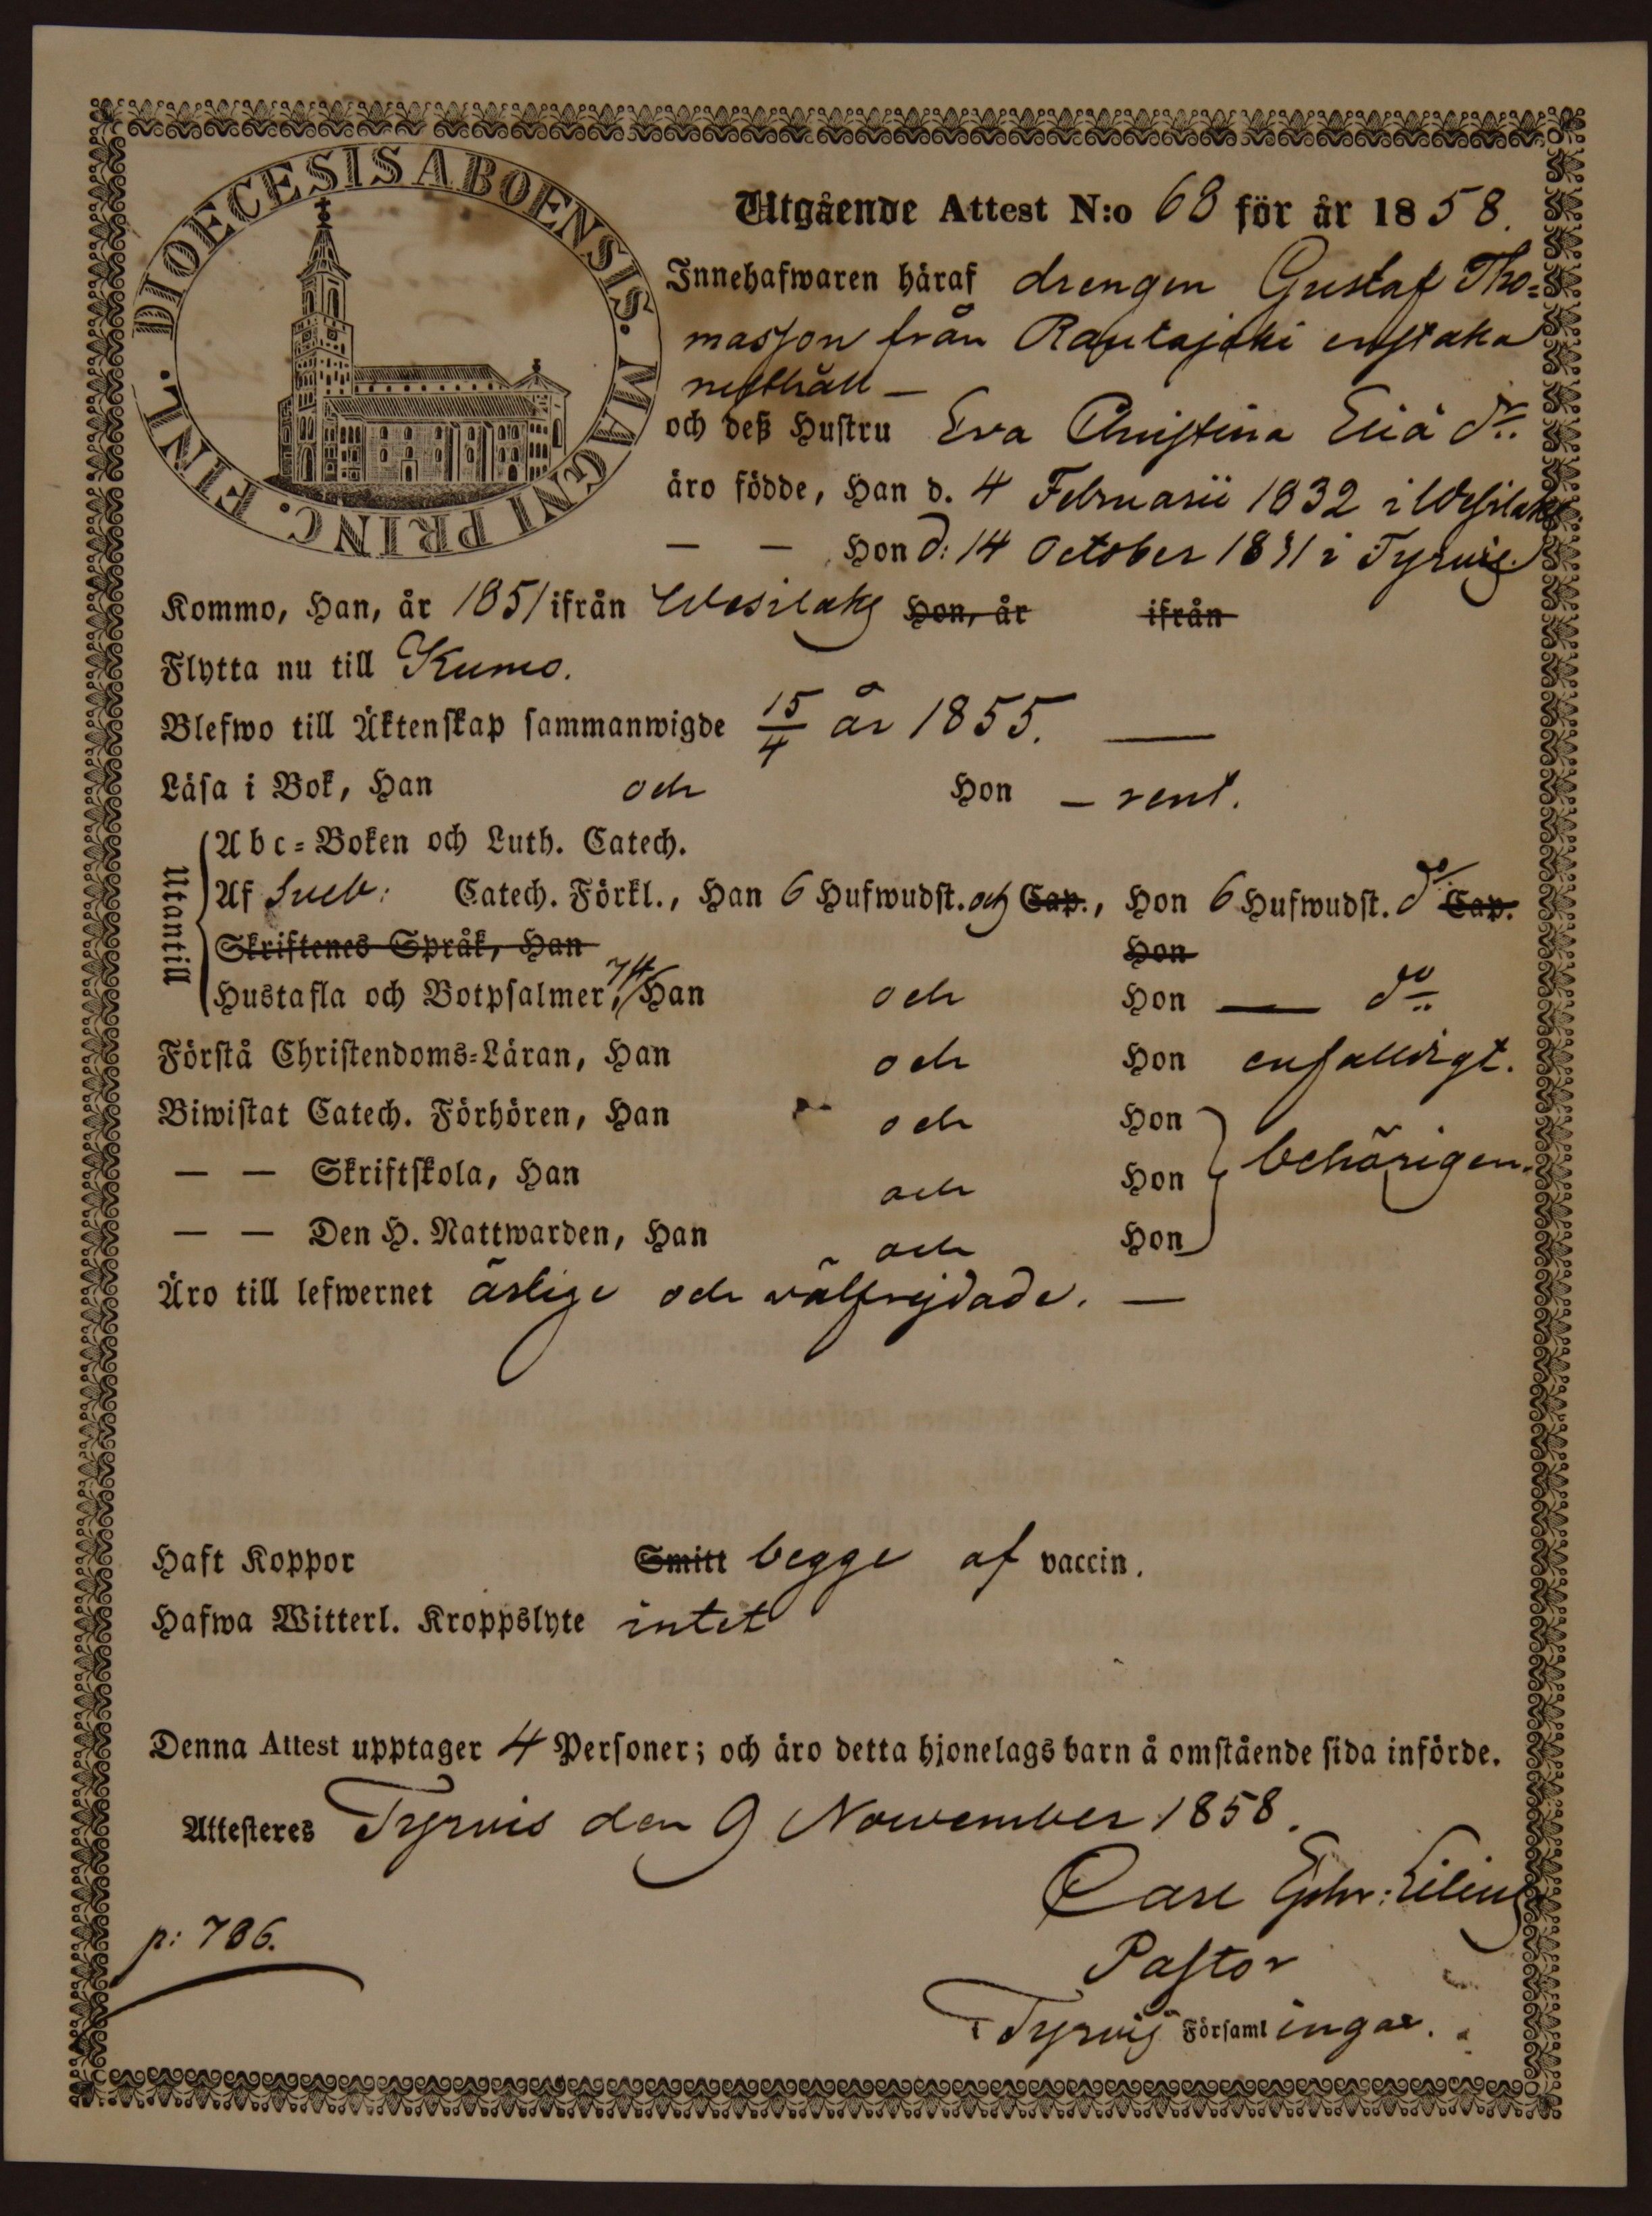 FINL. DIOECESIS ABOENSIS. MAGNI PRINC.
Utgående Attest N:o 68 för år 1858.
Innehafwaren häraf drengen Gustaf Tho=
masson från Rautajoki enstaka
rusthåll —
och deß Hustru Eva Christina Eliä dr.
äro födde, Han d. 4 Februarii 1832 i Wesilaks
— — Hon d: 14 October 1831 i Tyrvis.
Kommo, Han, år 1851 ifrån Wesilaks Hon, år ifrån
Flytta nu till Kumo.
Blefwo till Äktenskap sammanwigde 15/4 år 1855. —
Läsa i Bok, Han och Hon — rent.
Utantill
Abc=Boken och Luth. Catech.
Af Sveb: Catech. Förkl., Han 6 Hufwudst. och Cap., Hon 6 Hufwudst. do Cap.
Skriftenes Språk, Han Hon
Hustafla och Botpsalmer, 7 st. Han och Hon — do
Förstå Christendoms=Läran, Han och Hon enfalldigt.
Biwistat Catech. Förhören, Han och Hon
— — Skriftskola, Han och Hon behörigen.
— — Den H. Nattwarden, Han och Hon
Äro till lefwernet ärlige och välfrejdade. —
Haft Koppor Smitt begge af vaccin.
Hafwa Witterl. Kroppslyte intet
Denna Attest upptager 4 Personer; och äro detta hjonelags barn å omstående sida införde.
Attesteres Tyrvis den 9 November 1858.
Carl Ephr: Lilius
p: 786.
Pastor
i Tyrvis Församlingar.